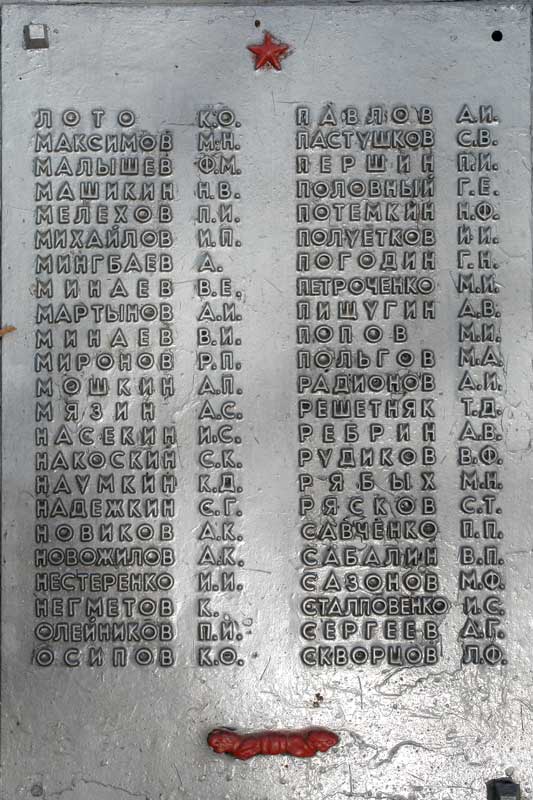 ЛОТО К.О.
МАКСИМОВ М.Н.
МАЛЫШЕВ Ф.М.
МАШИКИН Н.В.
МЕЛЕХОВ П.И.
МИХАЙЛОВ И.П.
МИНГБАЕВ А.
МИНАЕВ В.Е.
МАРТЫНОВ А.И.
МИНАЕВ В.И.
МИРОНОВ Р.П.
МОШКИН А.П.
МЯЗИН А.С.
НАСЕКИН И.С.
НАКОСКИН С.К.
НАУМКИН К.Д.
НАДЕЖКИН С.Г.
НОВИКОВ А.К.
НОВОЖИЛОВ А.К.
НЕСТЕРЕНКО И.И.
НЕГМЕТОВ К.
ОЛЕЙНИКОВ П.Й.
ОСИПОВ К.Ф.
ПАВЛОВ А.И.
ПАСТУШКОВ С.В.
ПЕРШИН П.И.
ПОЛОВНЫЙ Г.Е.
ПОТЕМКИН Н.Ф.
ПОЛУЕТКОВ И.И.
ПОГОДИН Г.Н.
ПЕТРОЧЕНКО М.И.
ПИЩУГИН А.В.
ПОПОВ М.И.
ПОЛЬГОВ М.А.
РАДИОНОВ А.И.
РЕШЕТНЯК Т.Д.
РЕБРИН А.В.
РУДИКОВ В.Ф.
РЯБЫХ М.Н.
РЯСКОВ С.Т.
САВЧЕНКО П.П.
САБАЛИН В.П.
САЗОНОВ М.Ф.
СТАЛПОВЕНКО И.С.
СЕРГЕЕВ А.Г.
СКВОРЦОВ Л.Ф.